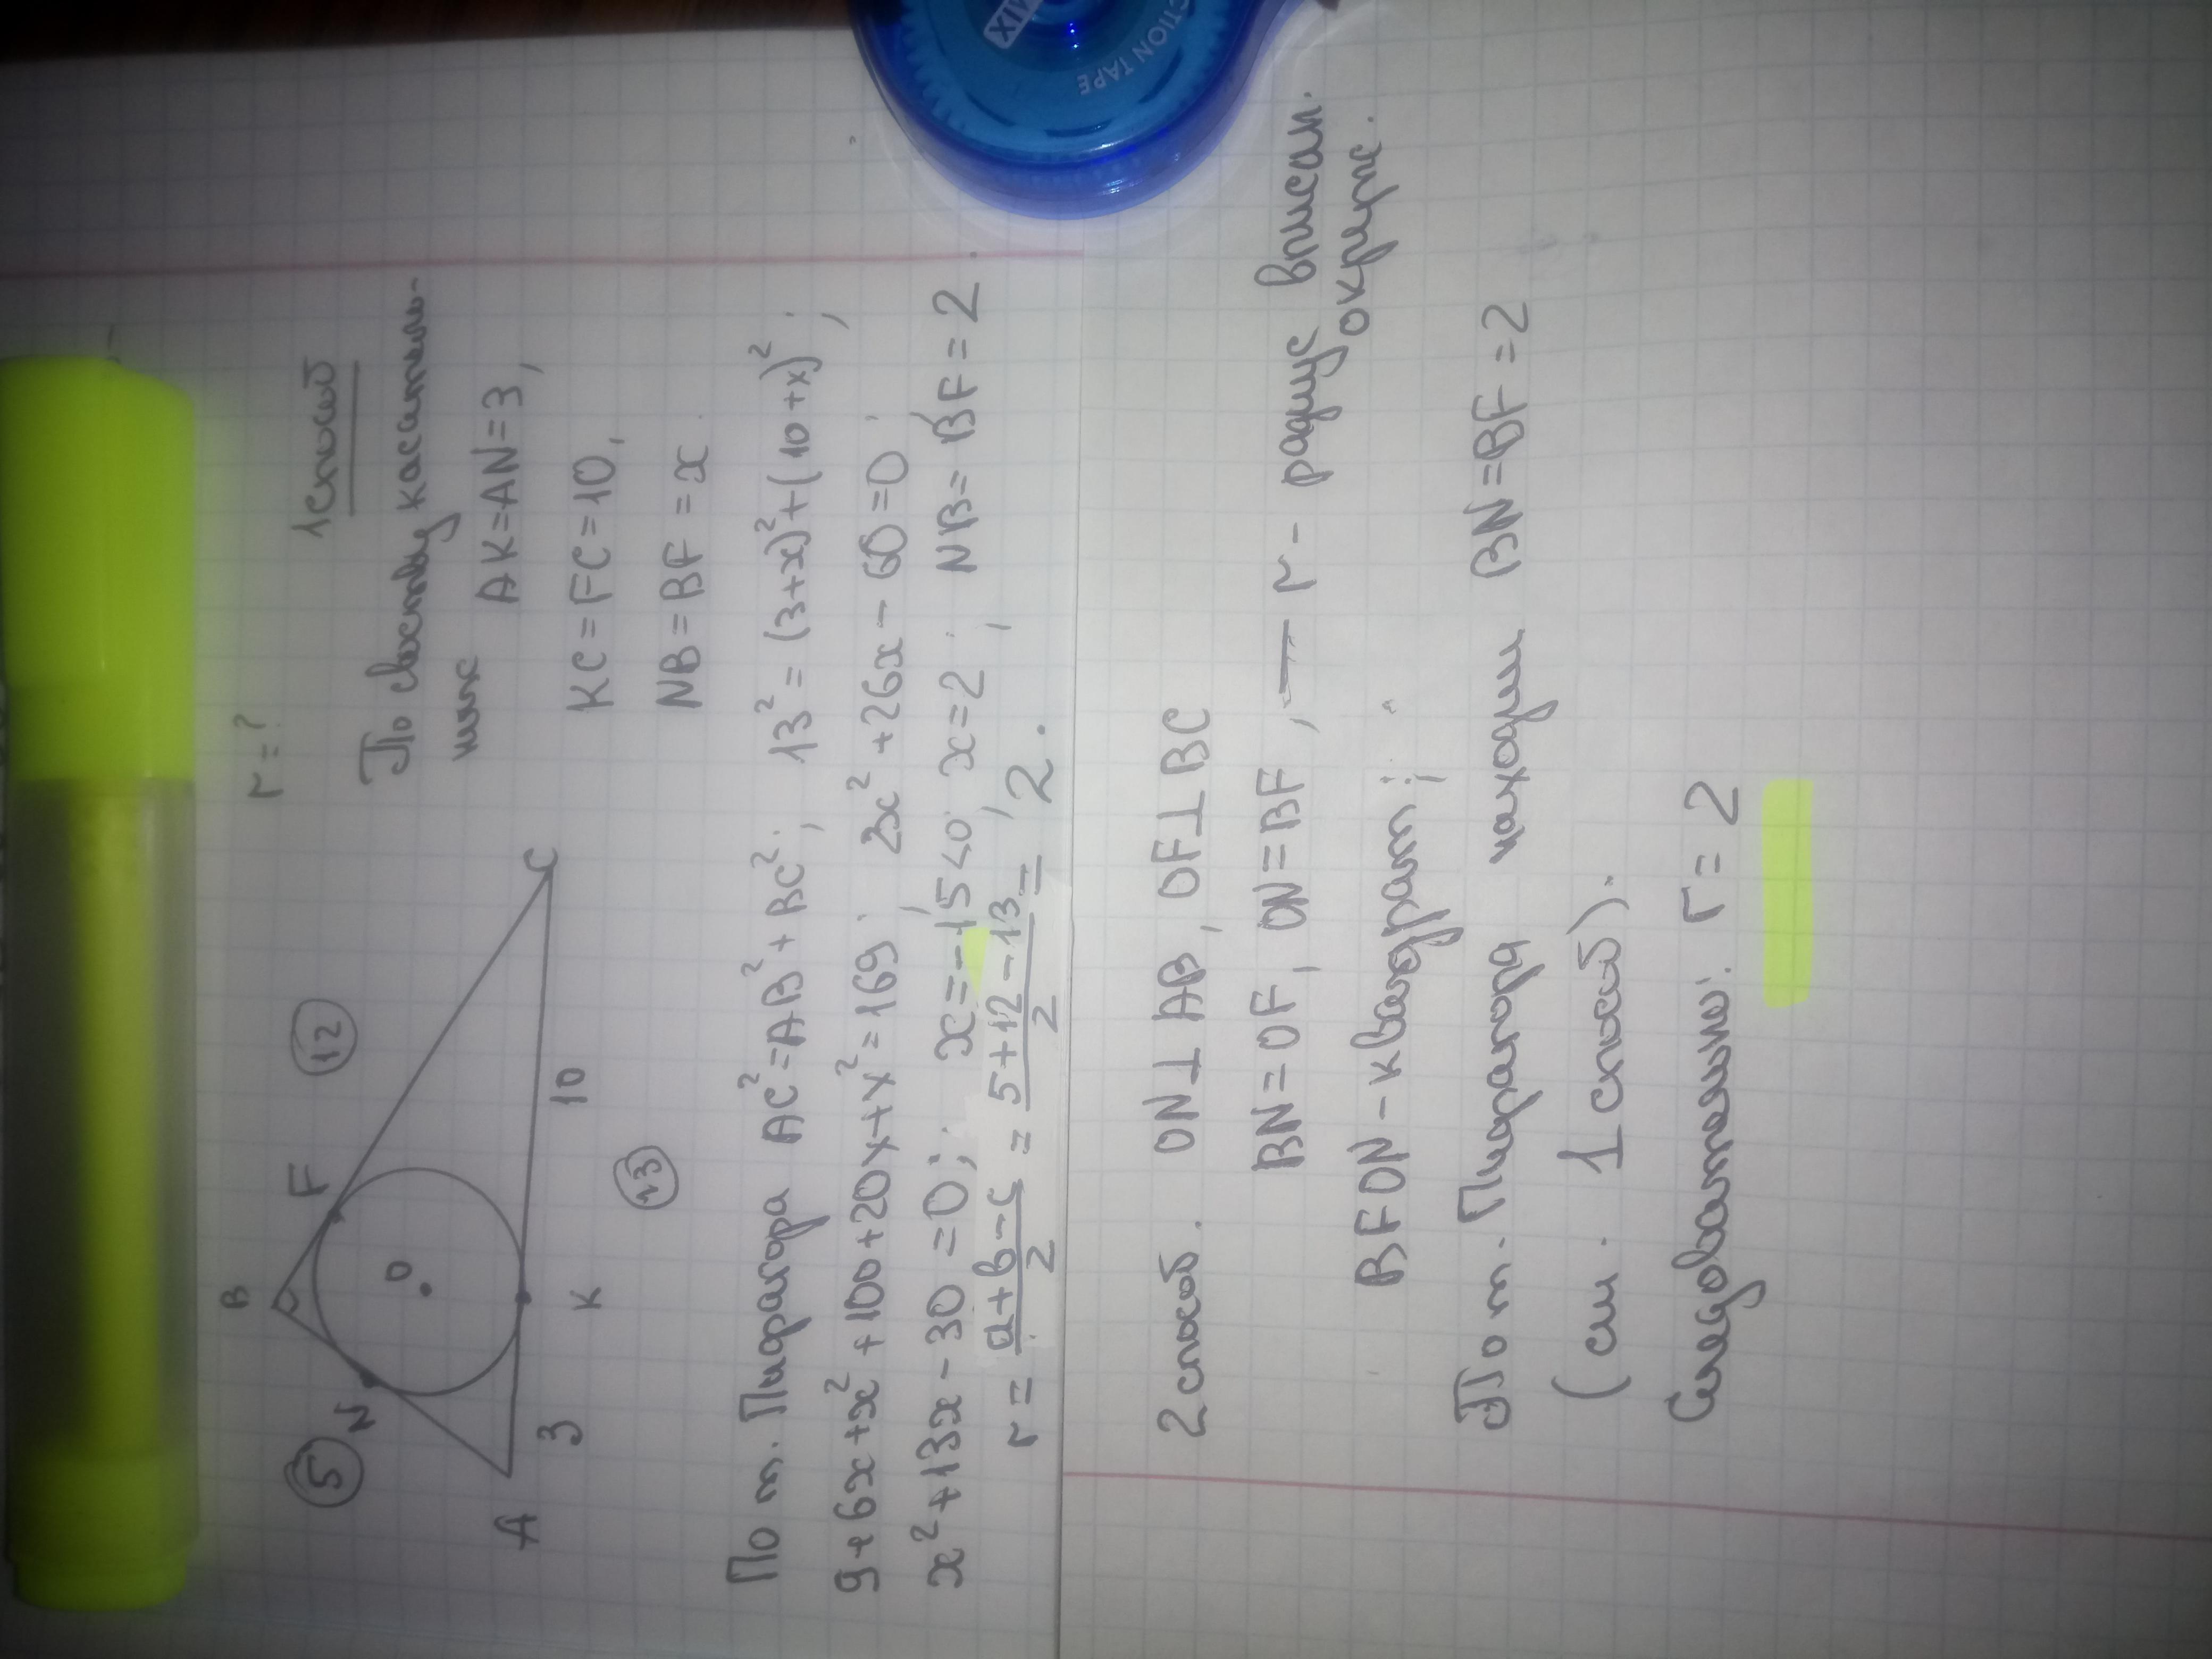 r=?
1 способ
По свойству касатель-
ных AK=AN=3,
KC=FC=10,
NB=BF=x.
B
F
12
N
5
O
A
3
K
10
C
13
По т. Пифагора AC²=AB²+BC²; 13²=(3+x)²+(10+x)²;
9+6x+x²+100+20x+x²=169; 2x²+26x-60=0;
x²+13x-30=0; x=-15<0; x=2; NB=BF=2.
r= a+b-c/2 = 5+12-13/2 = 2.
2 способ. ON⊥AB, OF⊥BC
BN=OF, ON=BF, — r - радиус вписан.
окруж.
BFON - квадрат;
По т. Пифагора находим BN=BF=2
(см. 1 способ).
Следовательно: r=2
MIX
CTION TAPE